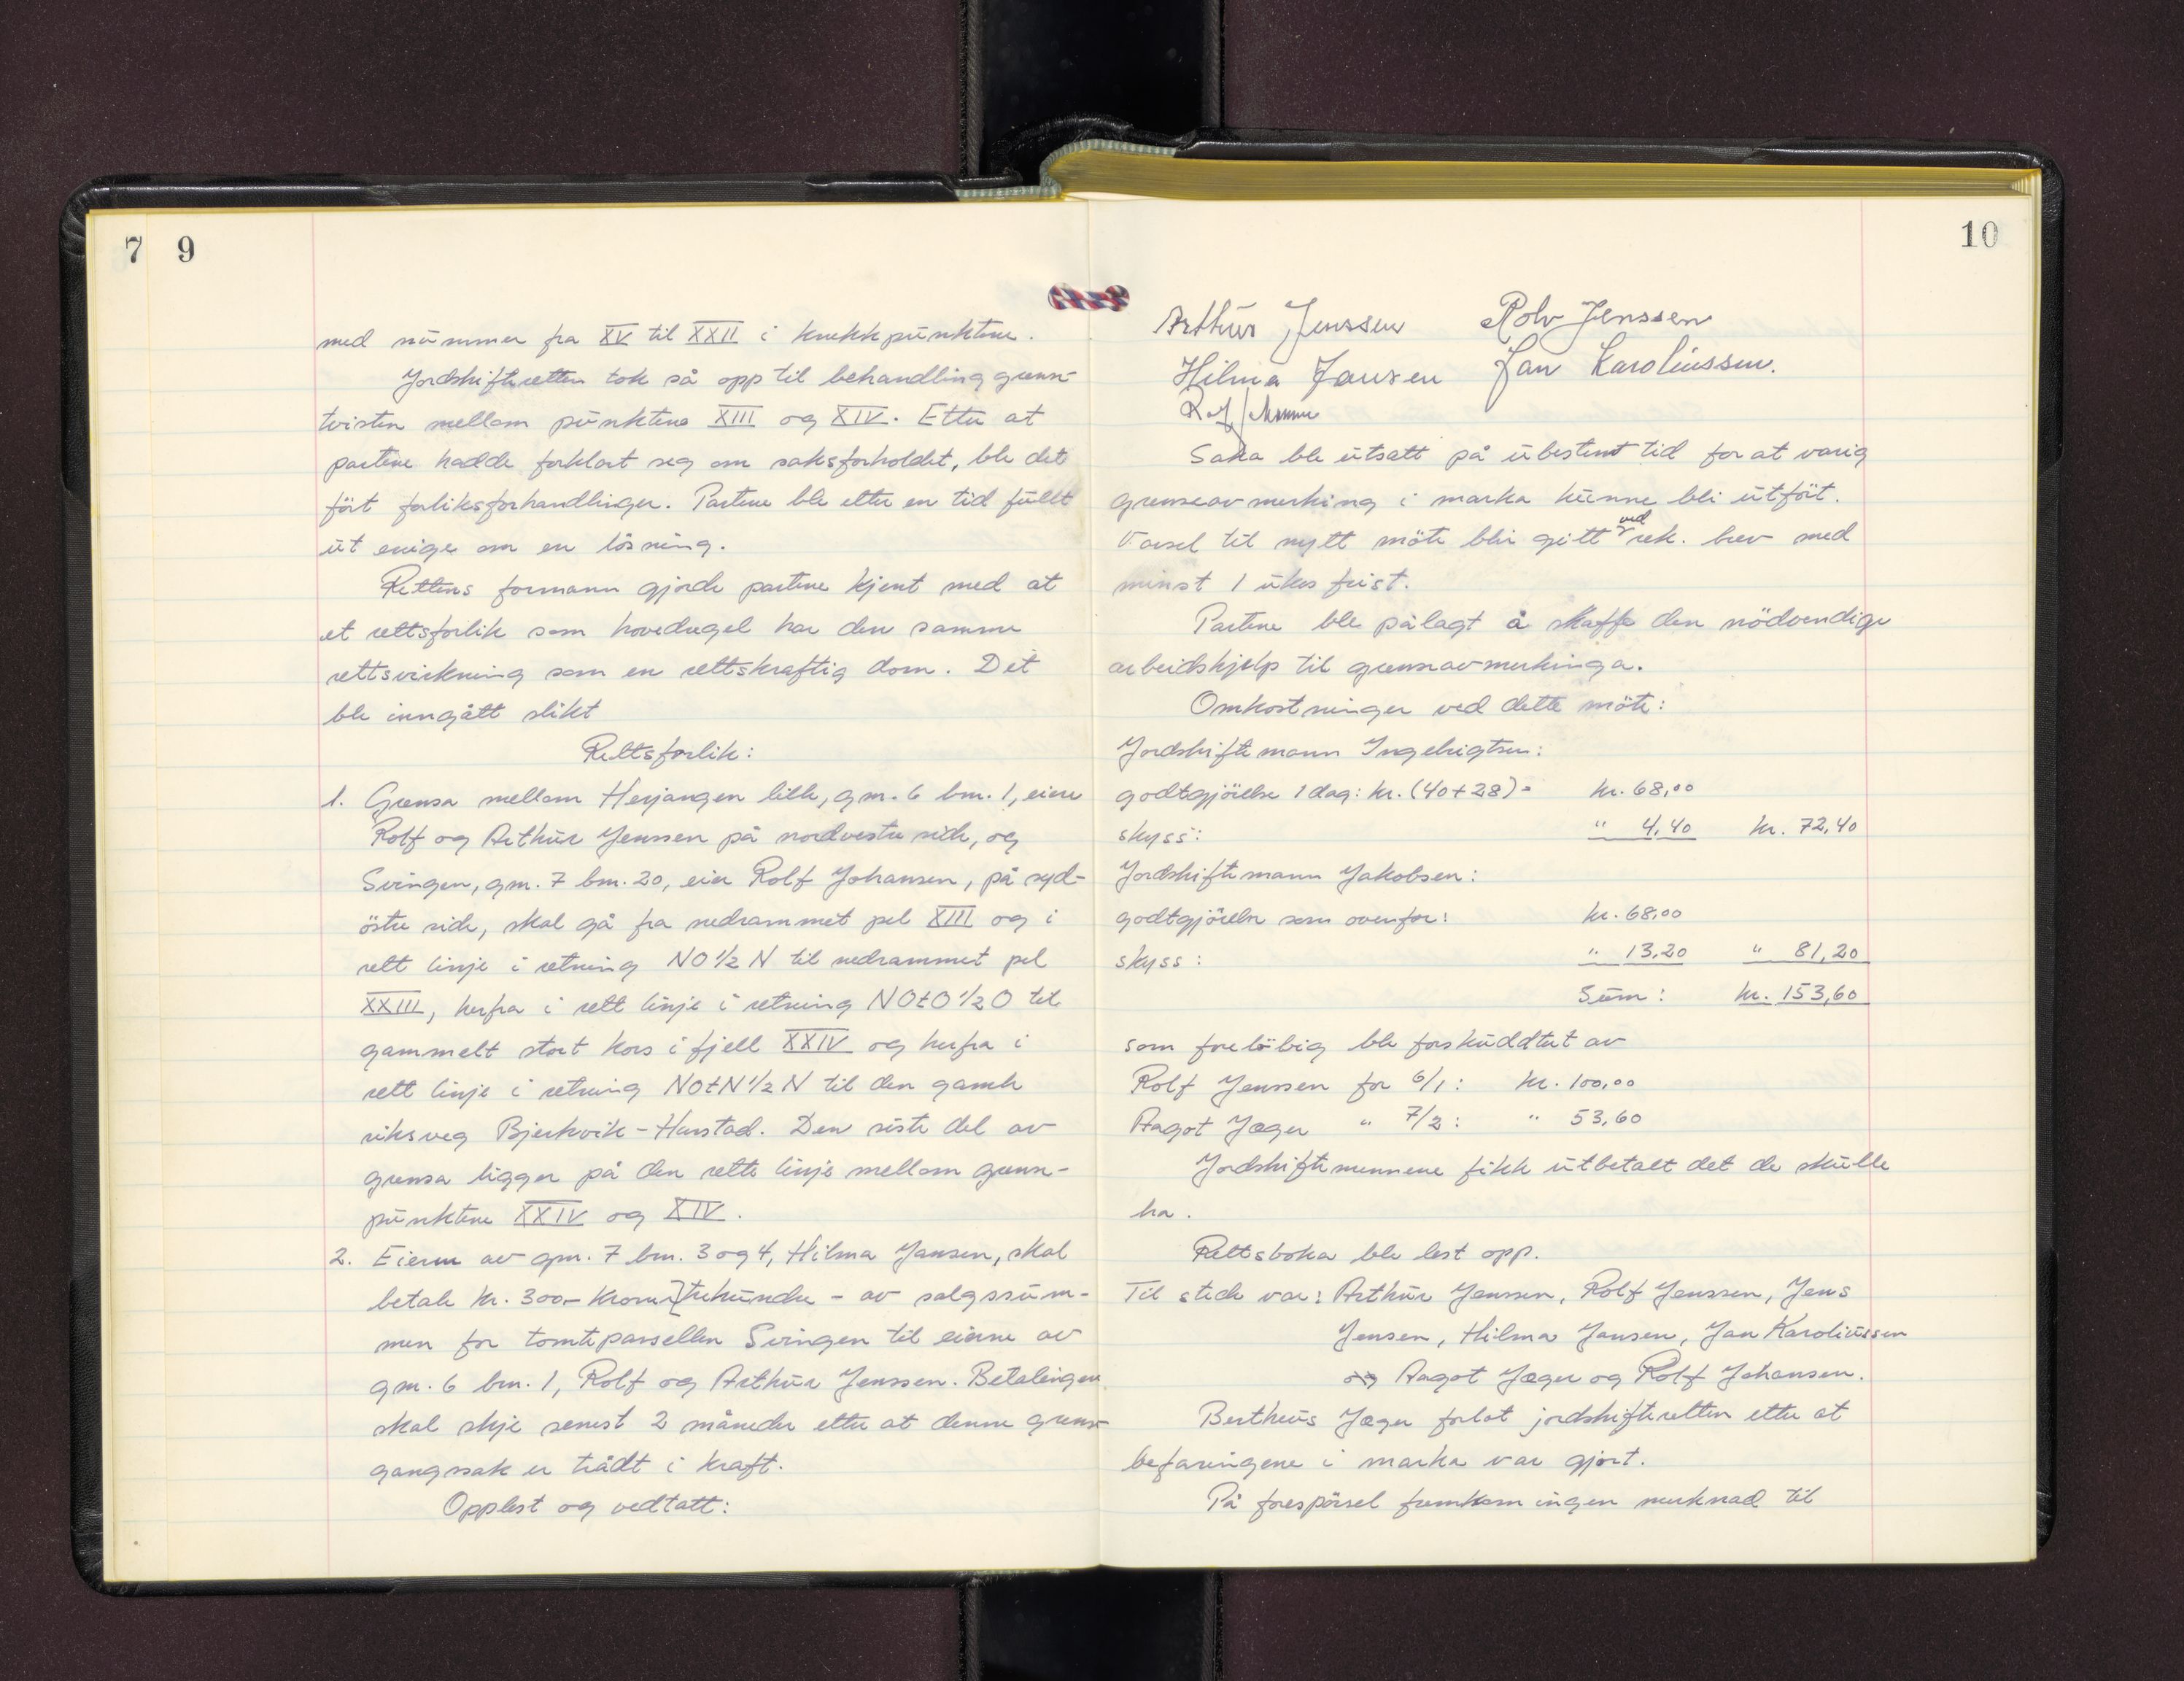 7 9
med nummer fra XV til XXII i knekkpunktene.
Jordskifteretten tok så opp til behandling grense-
tvisten mellom punktene XIII og XIV. Etter at
partene hadde forklart seg om saksforholdet, ble det
fört forliksforhandlinger. Partene ble etter en tid fullt
ut enige om en lösning.
Rettens formann gjorde partene kjent med at
et rettsforlik som hovedregel har den samme
rettsvirkning som en rettskraftig dom. Det
ble inngått slikt
Rettsforlik:
1. Grensa mellom Herjangen lille, gnr. 6 bnr. 1, eiere
Rolf og Arthur Jenssen på nordvestre side, og
Svingen, gnr. 7 bnr. 20, eier Rolf Johansen, på syd-
östre side, skal gå fra nedrammet pel XIII og i
rett linje i retning NO 1/2 N til nedrammet pel
XXIII, herfra i rett linje i retning NOtO 1/2 O til
gammelt stort kors i fjell XXIV og herfra i
rett linje i retning NOtN 1/2 N til den gamle
riksveg Bjerkvik - Harstad. Den siste del av
grensa ligger på den rette linje mellom grense-
punktene XXIV og XIV.
2. Eieren av gnr. 7 bnr. 3 og 4, Hilma Jansen, skal
betale kr. 300,- kroner trehundre - av salgssum-
men for tomteparsellen Svingen til eierne av
gnr. 6 bnr. 1, Rolf og Arthur Jenssen. Betalingen
skal skje senest 2 måneder etter at denne grense-
gangssak er trådt i kraft.
Opplest og vedtatt:
10
Arthur Jenssen Rolv Jenssen
Hilma Jansen Jan Karoliussen.
Rolf Johansen
Saka ble utsatt på ubestemt tid for at varig
grenseavmerking i marka kunne bli utfört.
Varsel til nytt möte blir gitt ved rek. brev med
minst 1 ukes frist.
Partene ble pålagt å skaffe den nödvendige
arbeidshjelp til grenseavmerkinga.
Omkostninger ved dette möte:
Jordskiftemann Ingebrigtsen:
godtgjörelse 1 dag: kr. (40+28) = kr. 68,00
skyss: " 4,40 kr. 72,40
Jordskiftemann Jakobsen:
godtgjörelse som ovenfor: kr. 68,00
skyss: " 13,20 " 81,20
Sum: kr. 153,60
som forelöbig ble forskuddtert av
Rolf Jenssen for 6/1: kr. 100,00
Aagot Jæger " 7/2: " 53,60
Jordskiftemennene fikk utbetalt det de skulle
ha.
Rettsboka ble lest opp.
Til stede var: Arthur Jenssen, Rolf Jenssen, Jens
Jensen, Hilma Jansen, Jan Karoliussen
og Aagot Jæger og Rolf Johansen.
Bertheus Jæger forlot jordskifteretten etter at
befaringene i marka var gjort.
På forespörsel fremkom ingen merknad til